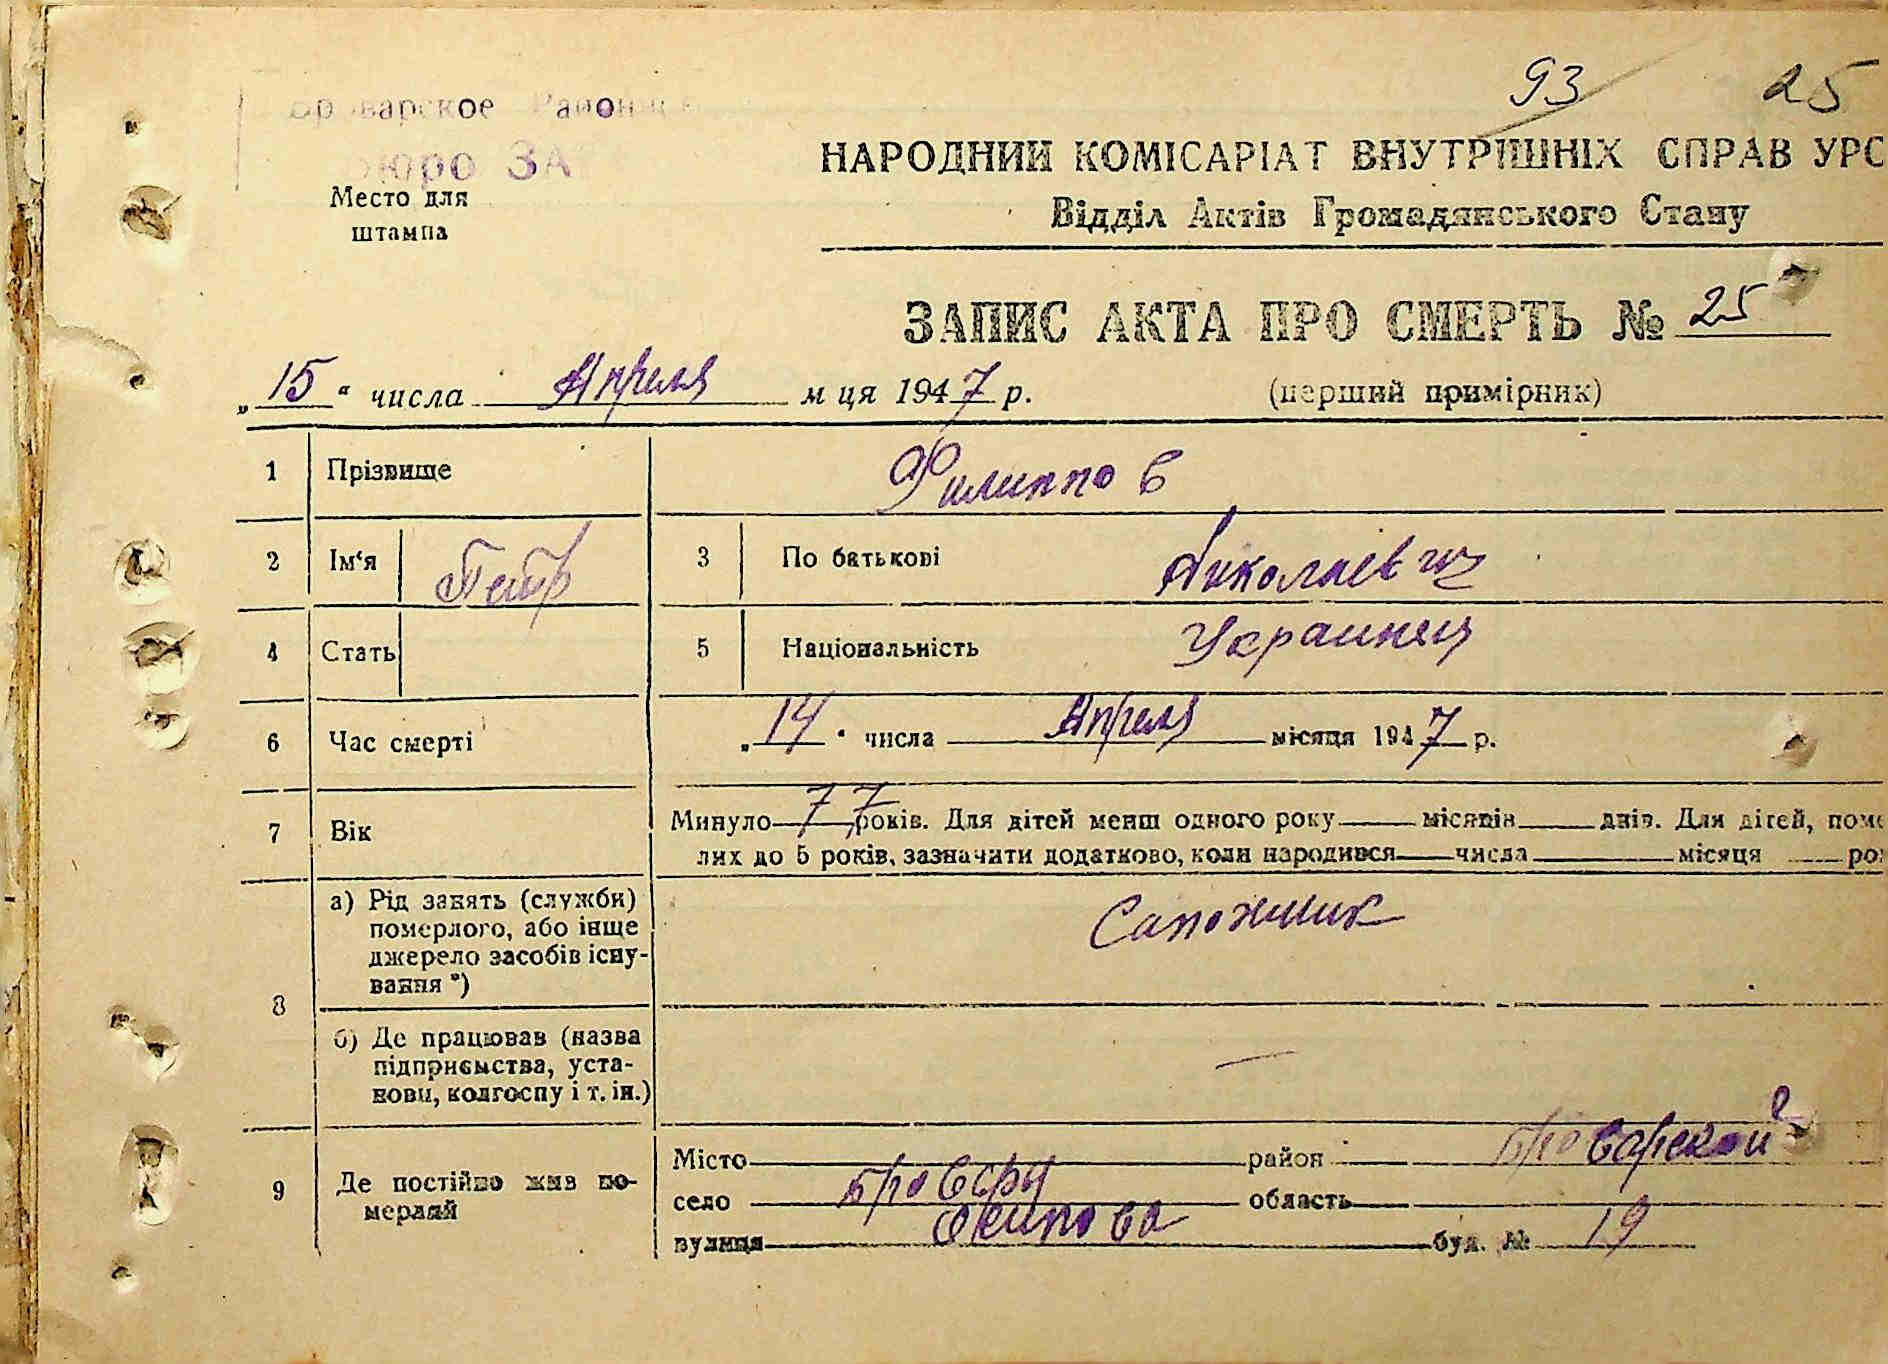 93 25
Броварское Район
Бюро ЗА
Место для
штампа
НАРОДНИЙ КОМІСАРІАТ ВНУТРІШНІХ СПРАВ УРС
Відділ Актів Громадянського Стану
ЗАПИС АКТА ПРО СМЕРТЬ № 25
„15“ числа Апреля м ця 1947 р. (перший примірник)
1 Прізвище Филиппов
2 Ім‘я Петр 3 По батькові Николаевич
4 Стать 5 Національність Украинец
6 Час смерті „14“ числа Апреля місяця 1947 р.
7 Вік Минуло 77 років. Для дітей менш одного року місяців днів. Для дітей, поме
лих до 5 років, зазначити додатково, коли народився числа місяця ро
8 а) Рід занять (служби)
померлого, або інще
джерело засобів існу-
вання *)
Сапожник
б) Де працював (назва
підприємства, уста-
нови, колгоспу і т. ін.)
—
9 Де постійно жив по-
мерлий
Місто район Броварской
село Бровары область
вулиця Осипова буд. № 19